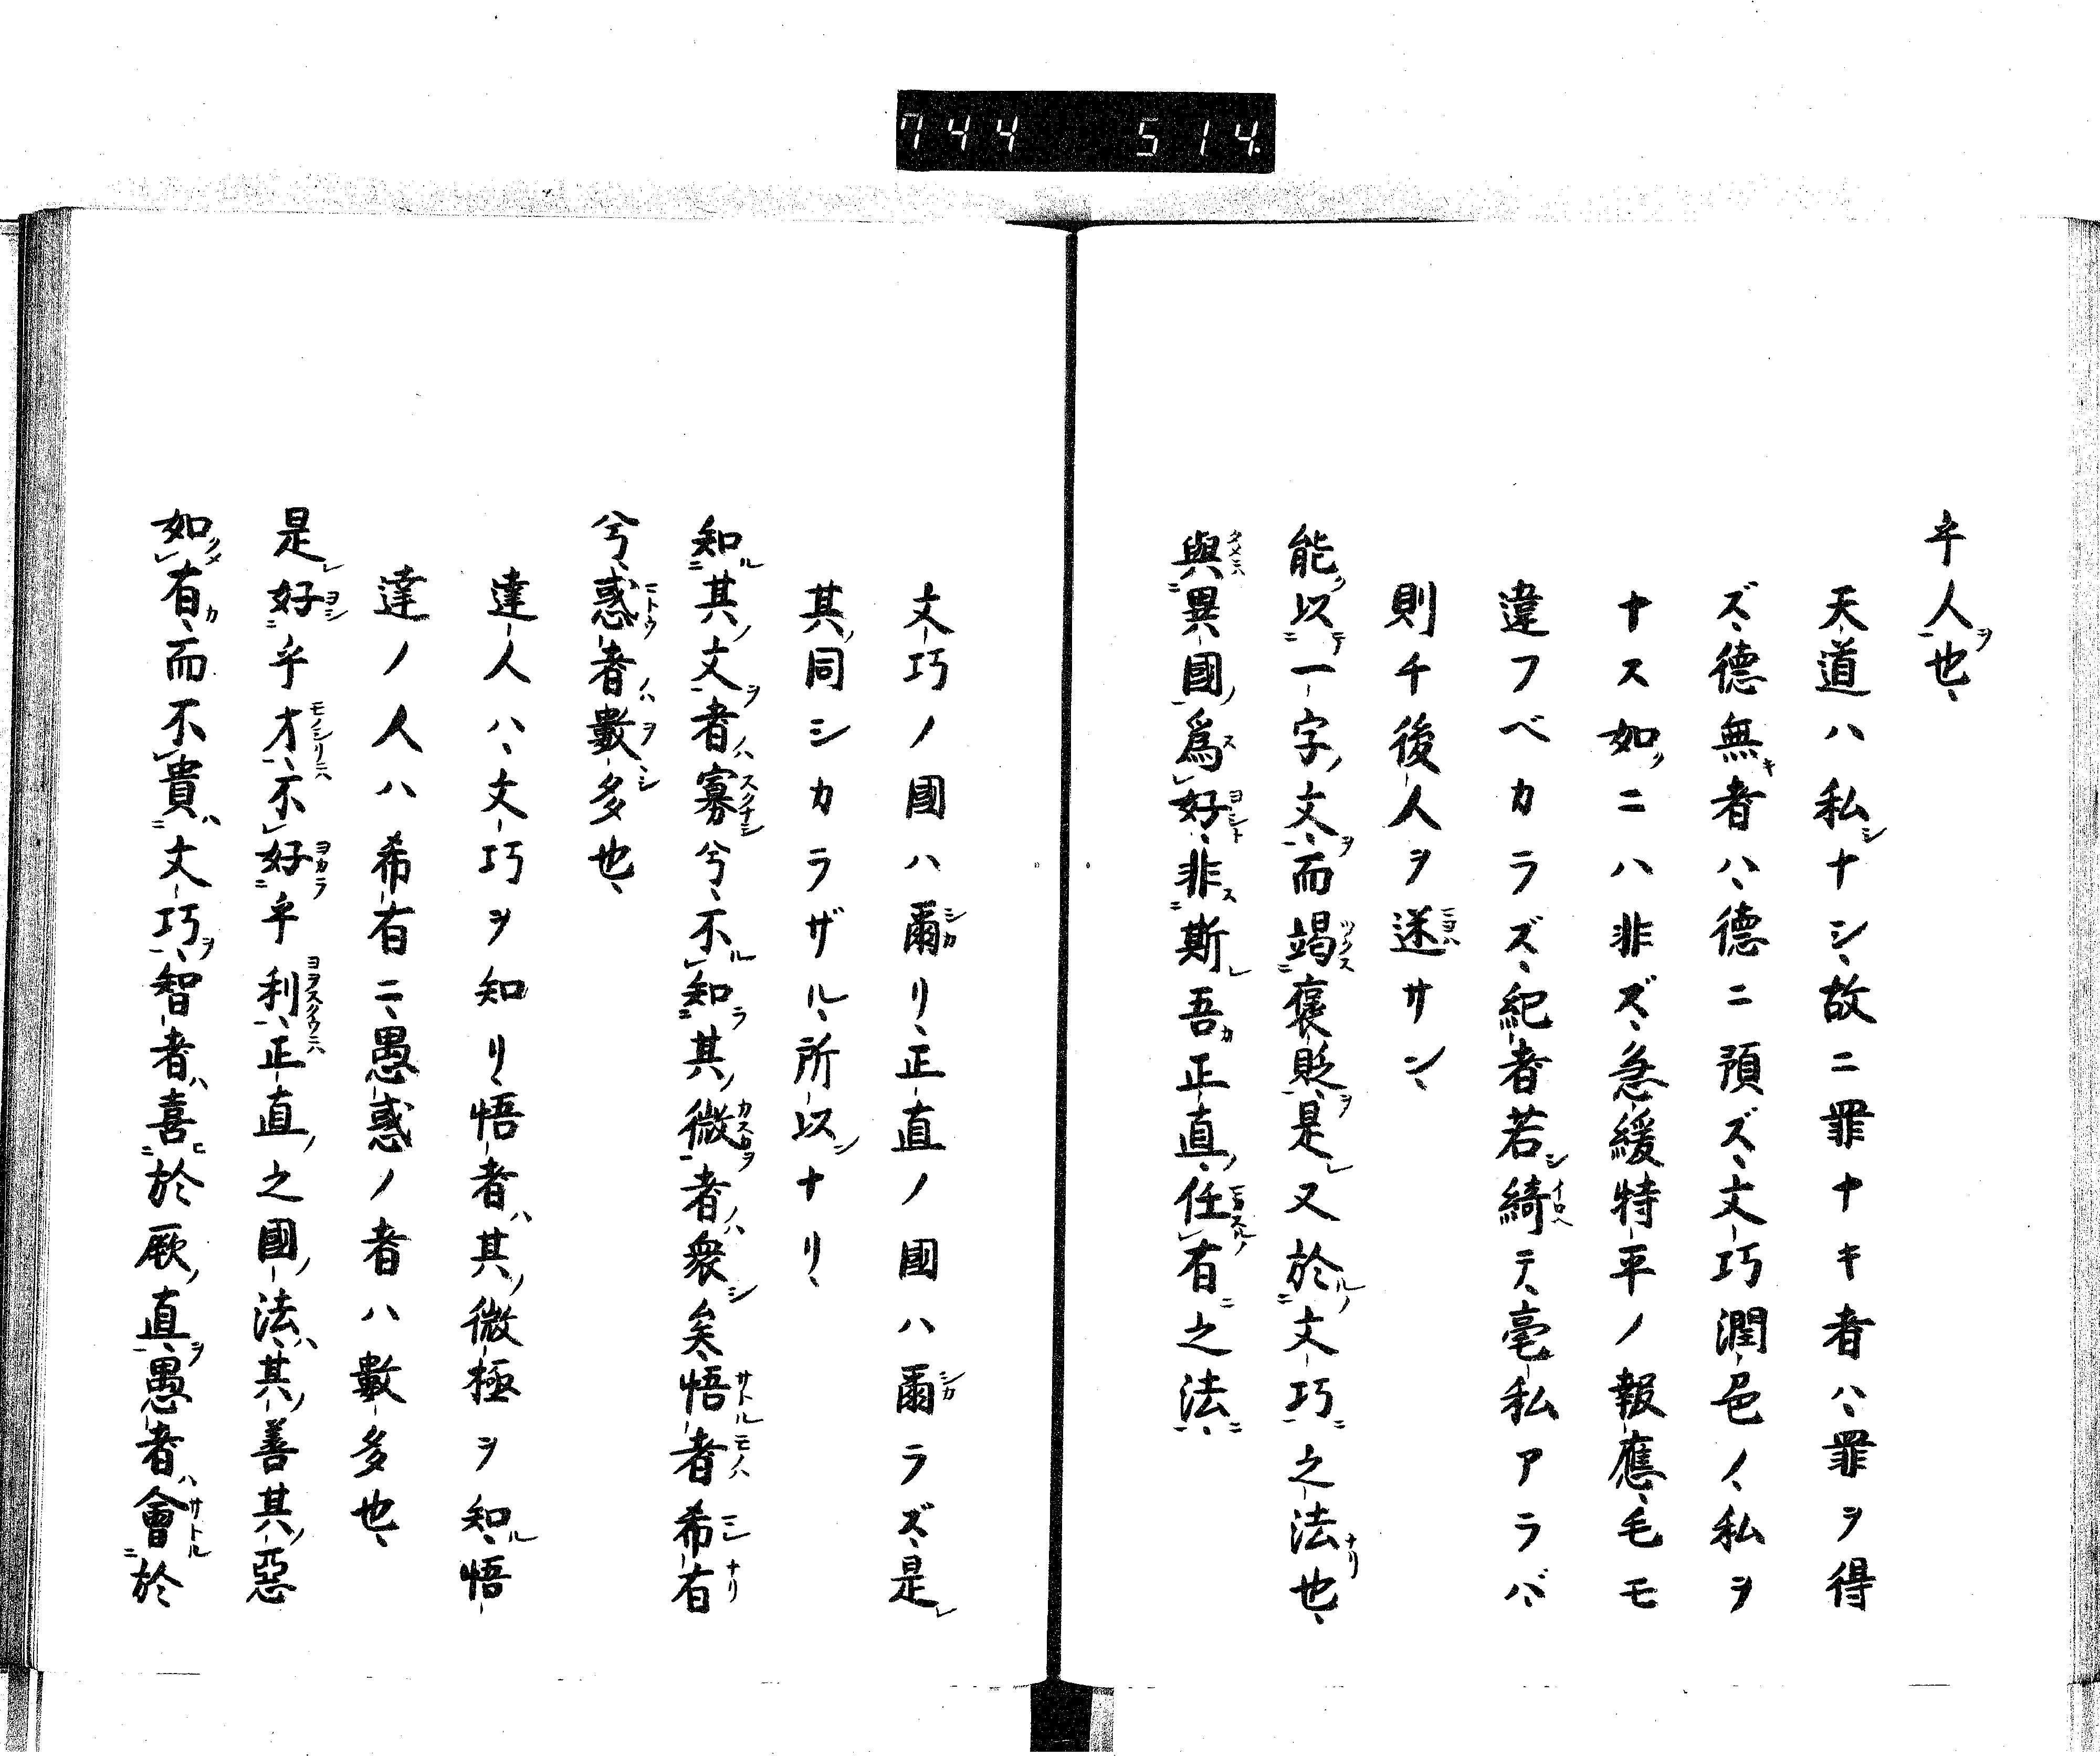 744 514
乎人也、
天道ハ私ナシ、故ニ罪ナキ者ハ、罪ヲ得
ズ、德無者ハ、德ニ預ズ、文巧潤色ノ、私ヲ
ナス如ニハ非ズ、急緩特平ノ報應、毛モ
違フベカラズ、紀者若綺テ、毫私アラバ、
則チ後人ヲ迷サン、
能以一字文、而竭褒貶、是又於文巧之法也、
與異國爲好、非斯吾正直、任有之法、
文巧ノ國ハ爾リ、正直ノ國ハ爾ラズ、是
其同シカラザル、所以ナリ、
知其文者寡兮、不知其微者衆矣、悟者希有
兮、惑者數多也、
達人ハ、文巧ヲ知リ、悟者其微極ヲ知、悟
達ノ人ハ希有ニ、愚惑ノ者ハ數多也、
是好乎才、不好乎利、正直之國法、其善其惡
如有、而不貴文巧、智者喜於厥直、愚者會於